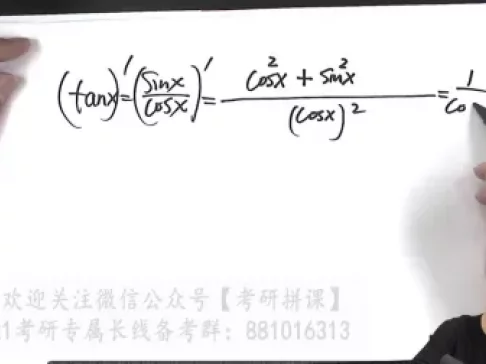 (tanx)′=(sinx/cosx)′=(cos²x+sin²x)/(cosx)²=1/co
欢迎关注微信公众号【考研拼课】
1考研专属长线备考群：881016313